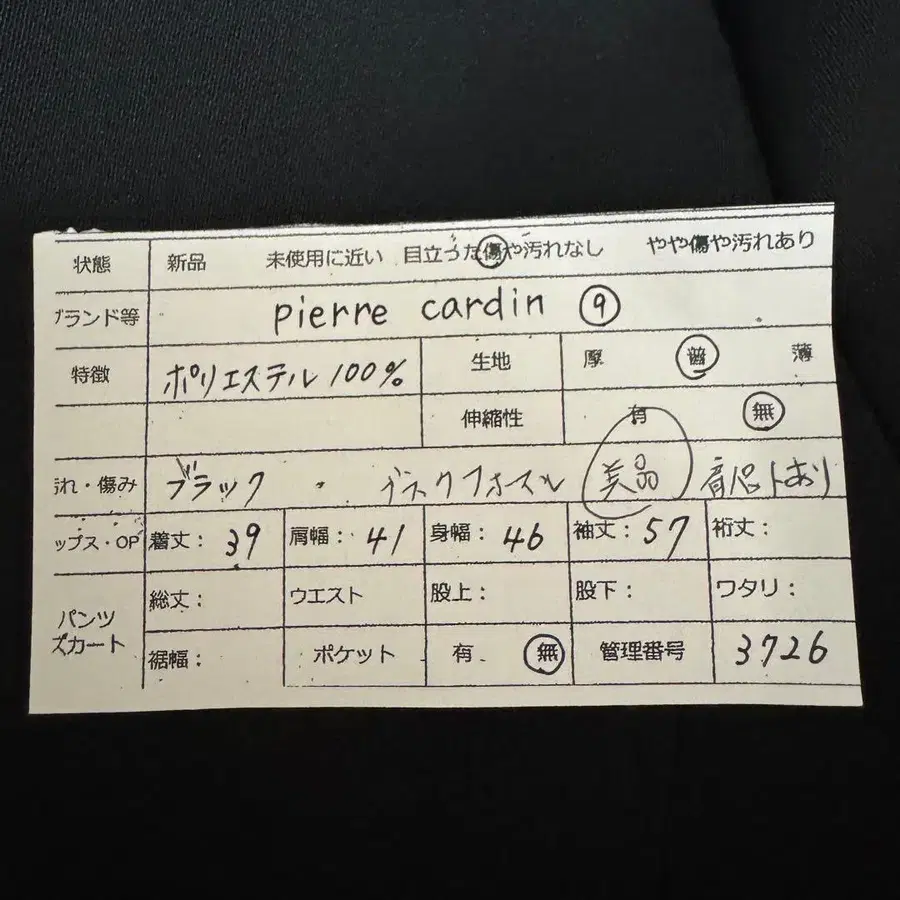 状態 新品 未使用に近い 目立った傷や汚れなし やや傷や汚れあり
ブランド等 pierre cardin ⑨
特徴 ポリエステル100% 生地 厚 普 薄
伸縮性 有 無
汚れ・傷み ブラック 美品 あり
ップス・OP 着丈: 39 肩幅: 41 身幅: 46 袖丈: 57 裄丈:
パンツ 総丈: ウエスト 股上: 股下: ワタリ:
スカート 裾幅: ポケット 有 無 管理番号 3726